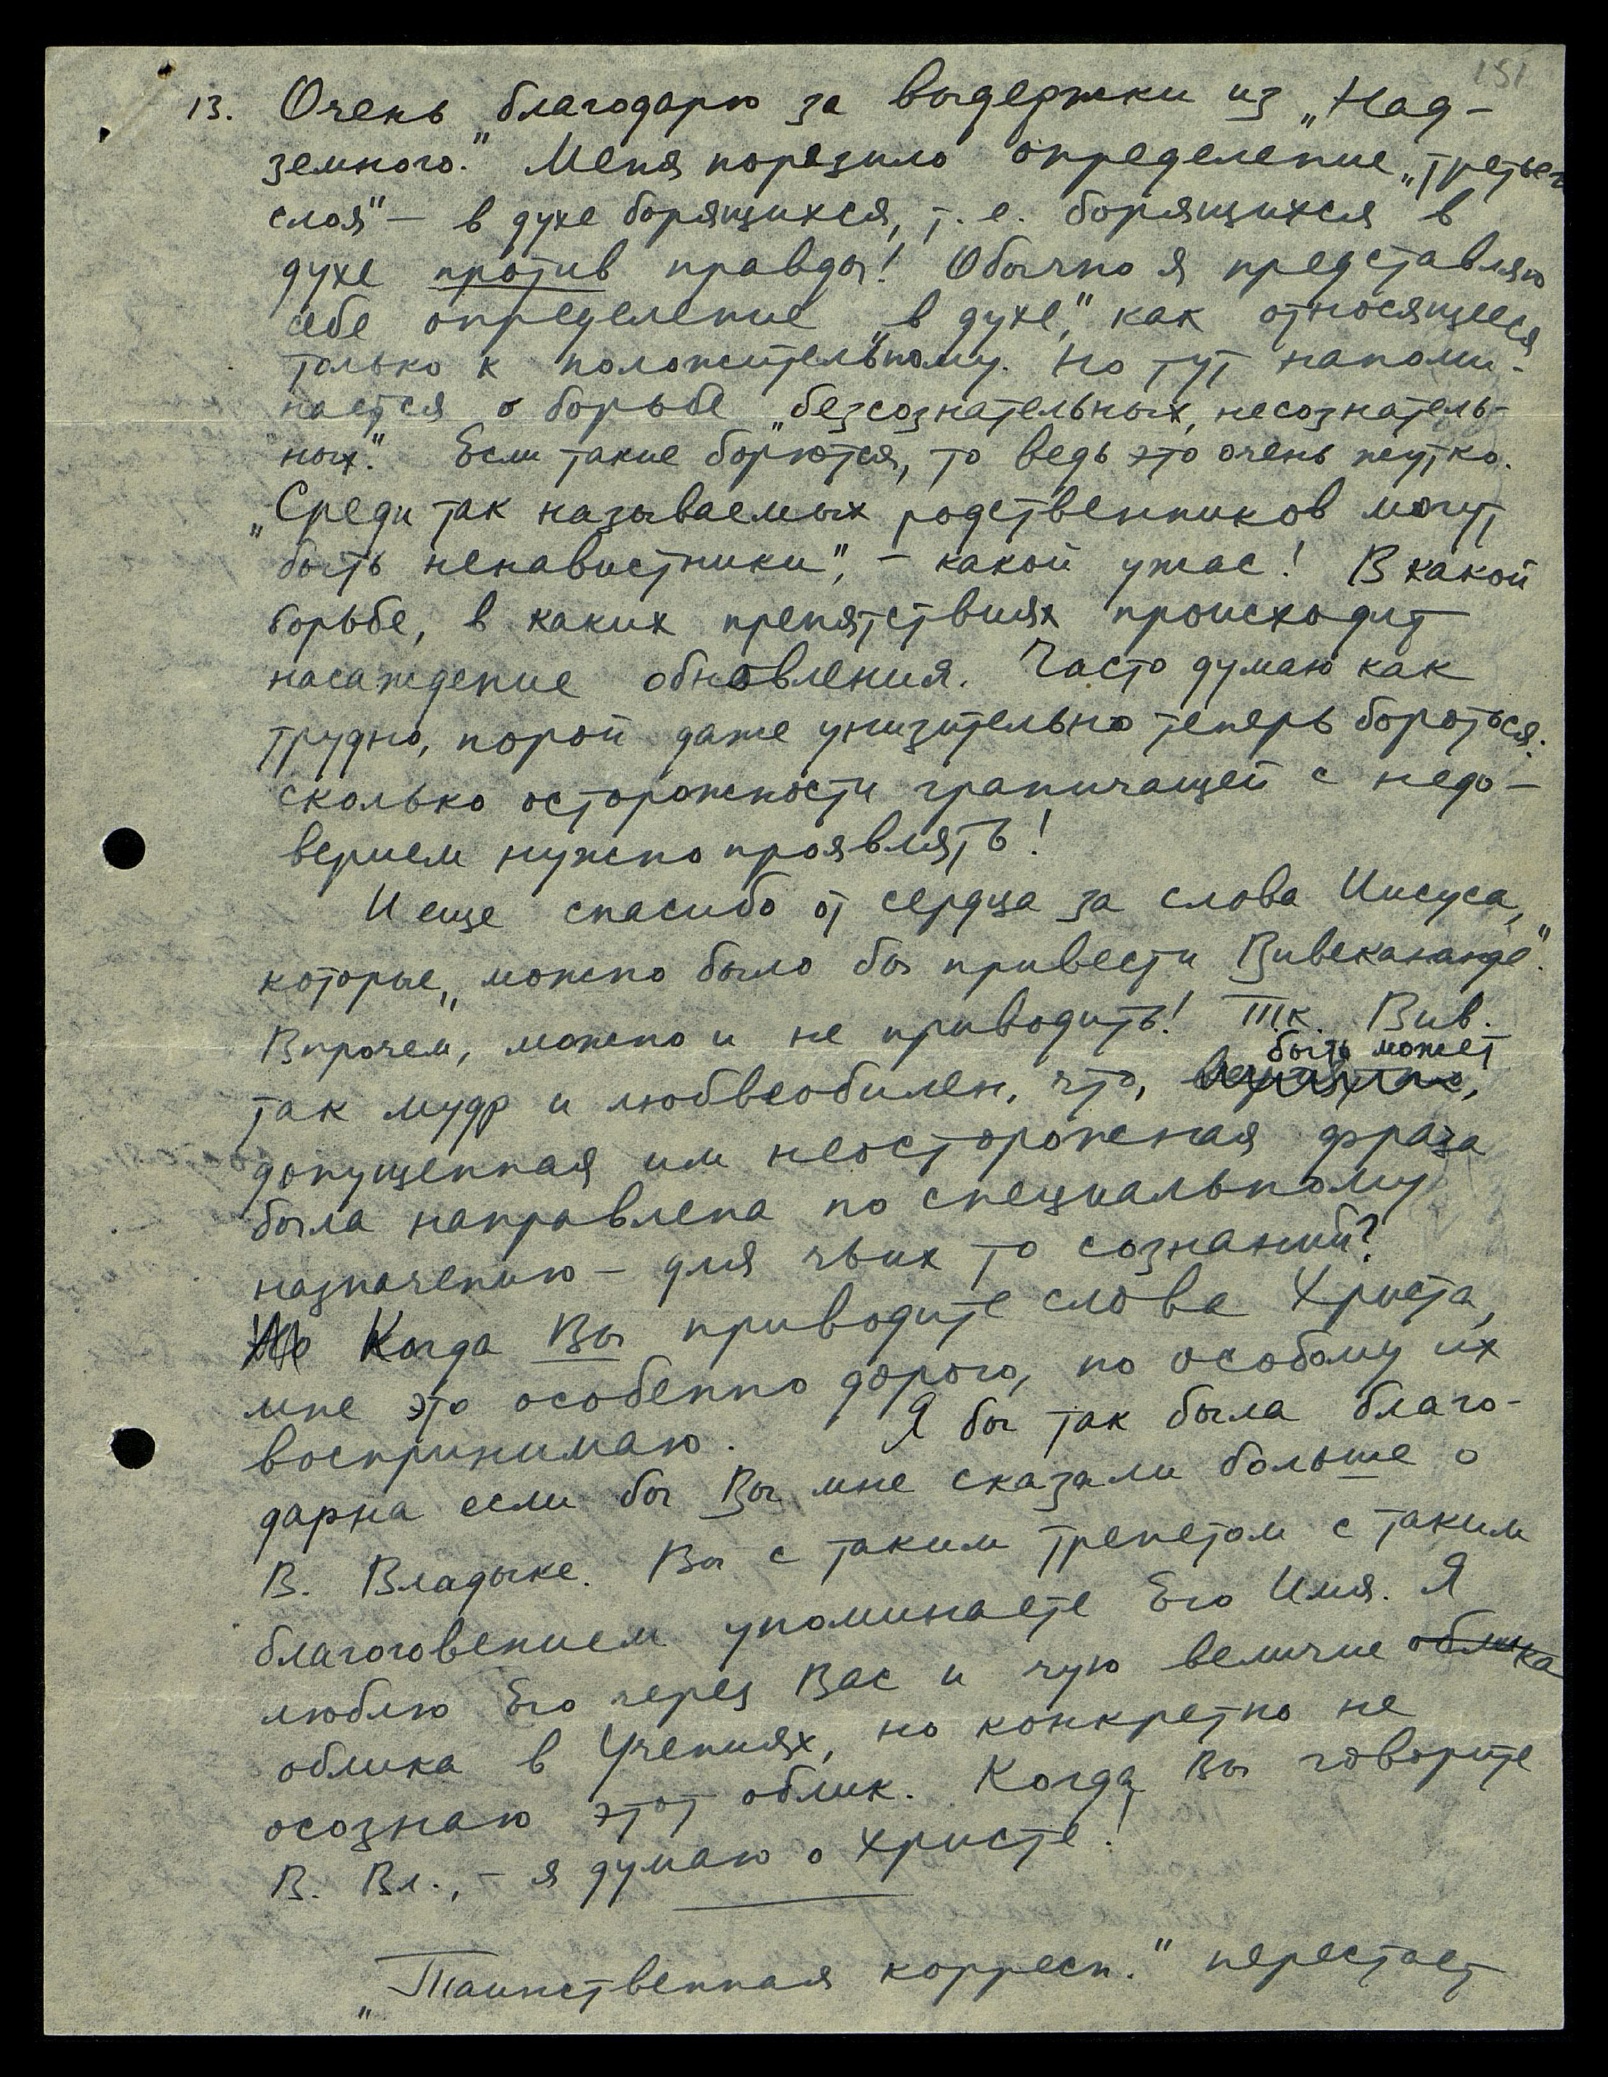 151
13. Очень благодарю за выдержки из „Над-
земного." Меня поразило определение „третьего
слоя" — в духе борящихся, т. е. борящихся в
духе против правды! Обычно я представляю
себе определение „в духе", как относящееся
только к положительному. Но тут напоми-
нается о борьбе „безсознательных, несознатель-
ных". Если такие борются, то ведь это очень жутко.
„Среди так называемых родственников могут
быть ненавистники", — какой ужас! В какой
борьбе, в каких препятствиях происходит
насаждение обновления. Часто думаю как
трудно, порой даже унизительно теперь бороться:
сколько осторожности граничащей с недо-
верием нужно проявлять!
И еще спасибо от сердца за слова Иисуса,
которые „можно было бы привести Вивекананде".
Впрочем, можно и не приводить! Тк. Вив.
быть может
так мудр и любвеобилен, что,
допущенная им неосторожная фраза
была направлена по специальному
назначению — для чьих то сознаний?
Но Когда Вы приводите слова Христа,
мне это особенно дорого, по особому их
воспринимаю. Я бы так была благо-
дарна если бы Вы мне сказали больше о
В. Владыке. Вы с таким трепетом с таким
благоговением упоминаете Его Имя. Я
люблю Его через Вас и чую величие облика
облика в Учениях, но конкретно не
осознаю этот облик. Когда Вы говорите
В. Вл., — я думаю о Христе!
„Таинственная корресп." перестает